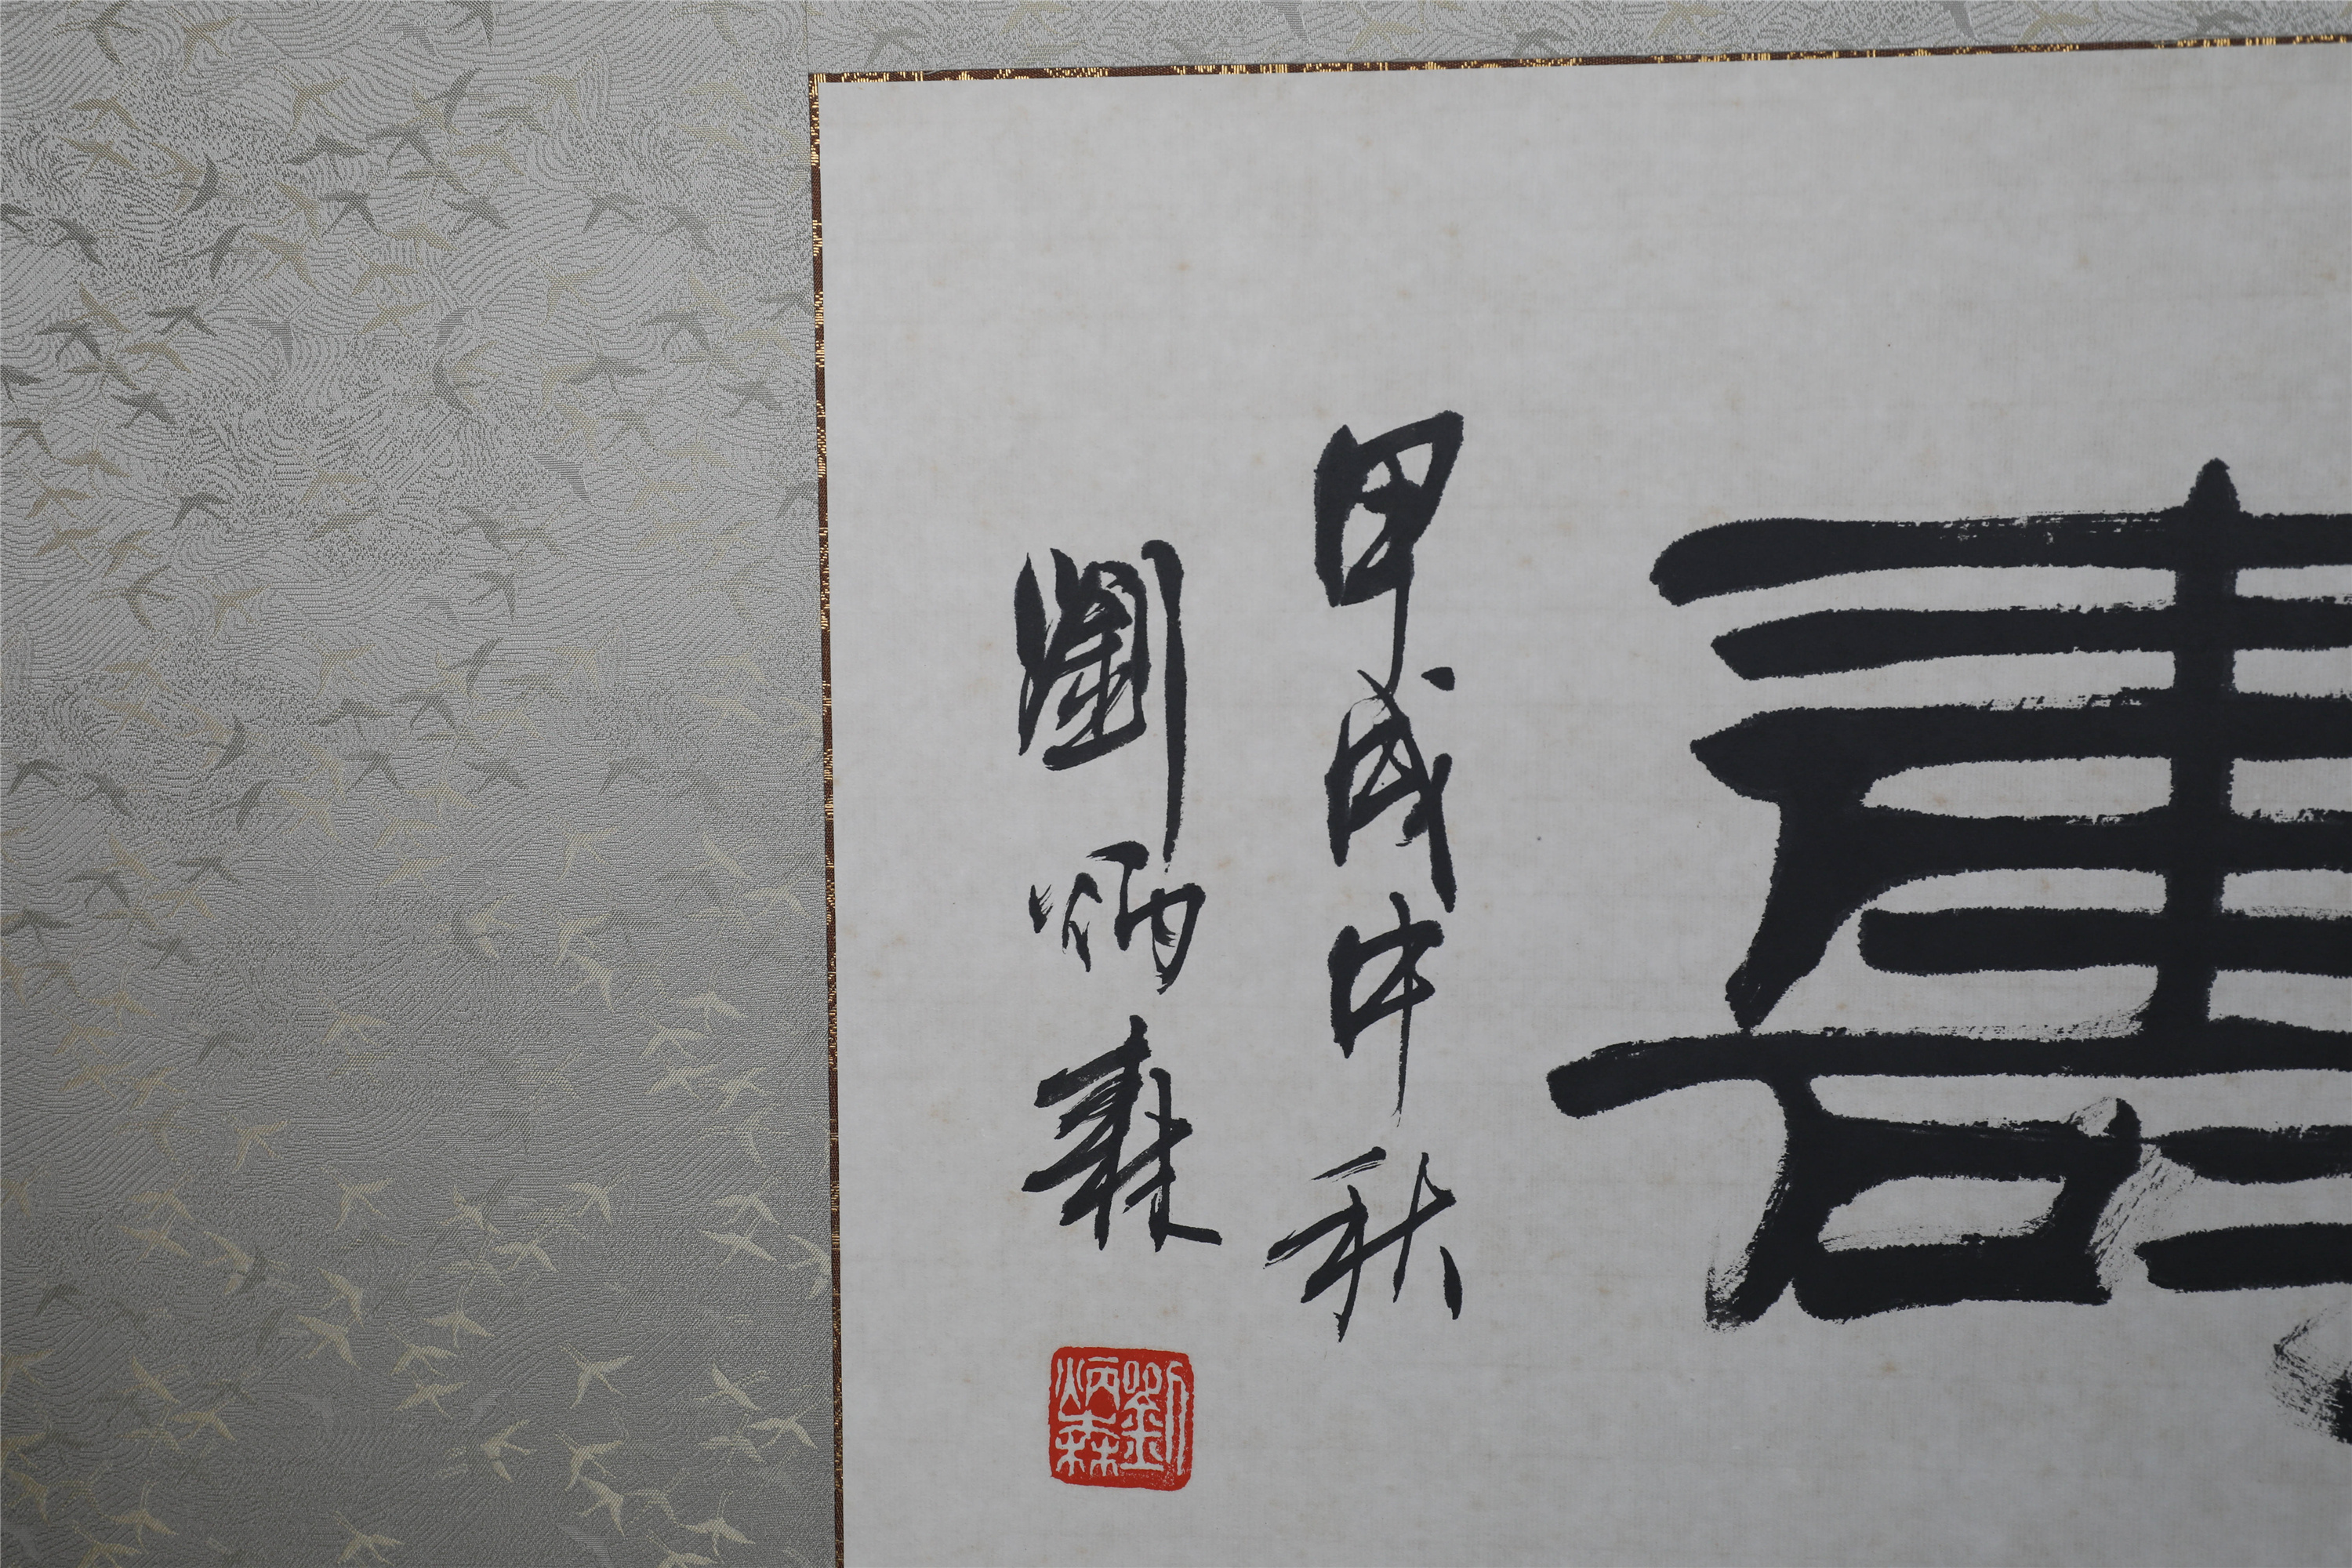 壽
甲戌中秋
劉炳森
劉炳森